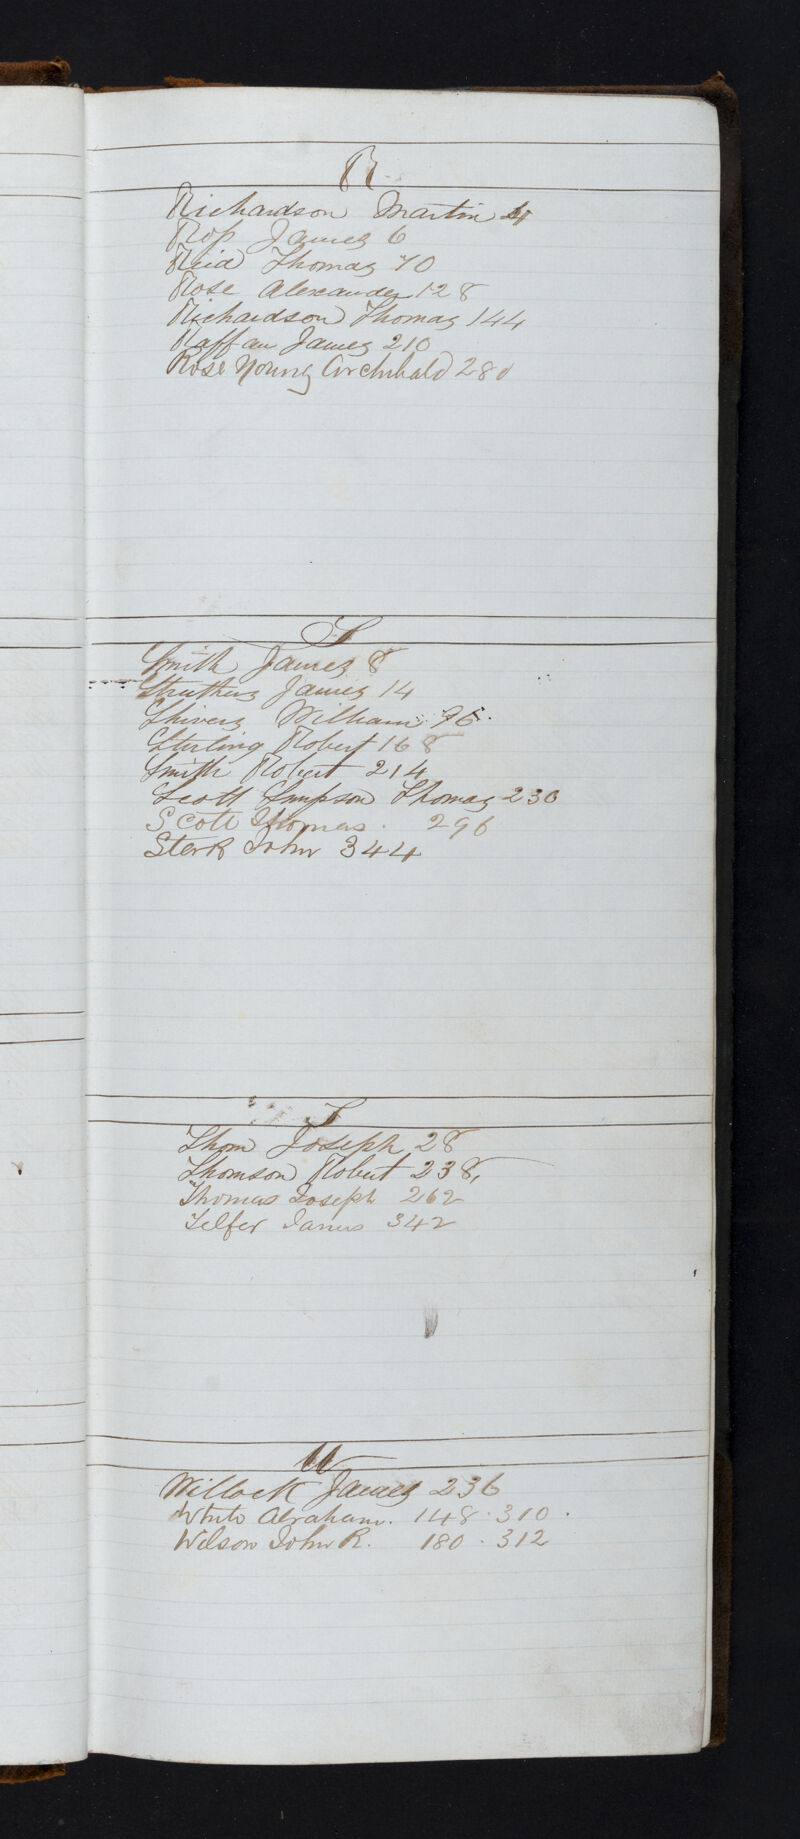 R
Richardson Martin 4
Ross James 6
Reid Thomas 70
Rose Alexander 128
Richardson Thomas 144
Raffan James 210
Rose Young Archibald 280
S
Smith James 8
Struthers James 14
Shivers William 96
Stirling Robert 168
Smith Robert 214
Scott Simpson Thomas 230
Scott Thomas. 296
Sterk John 344
T
Thom Joseph 28
Thomson Robert 238,
Thomas Joseph 262
Telfer James 342
W
Willock James 236
White Abraham. 148 · 310 .
Wilson John R. 180 · 312